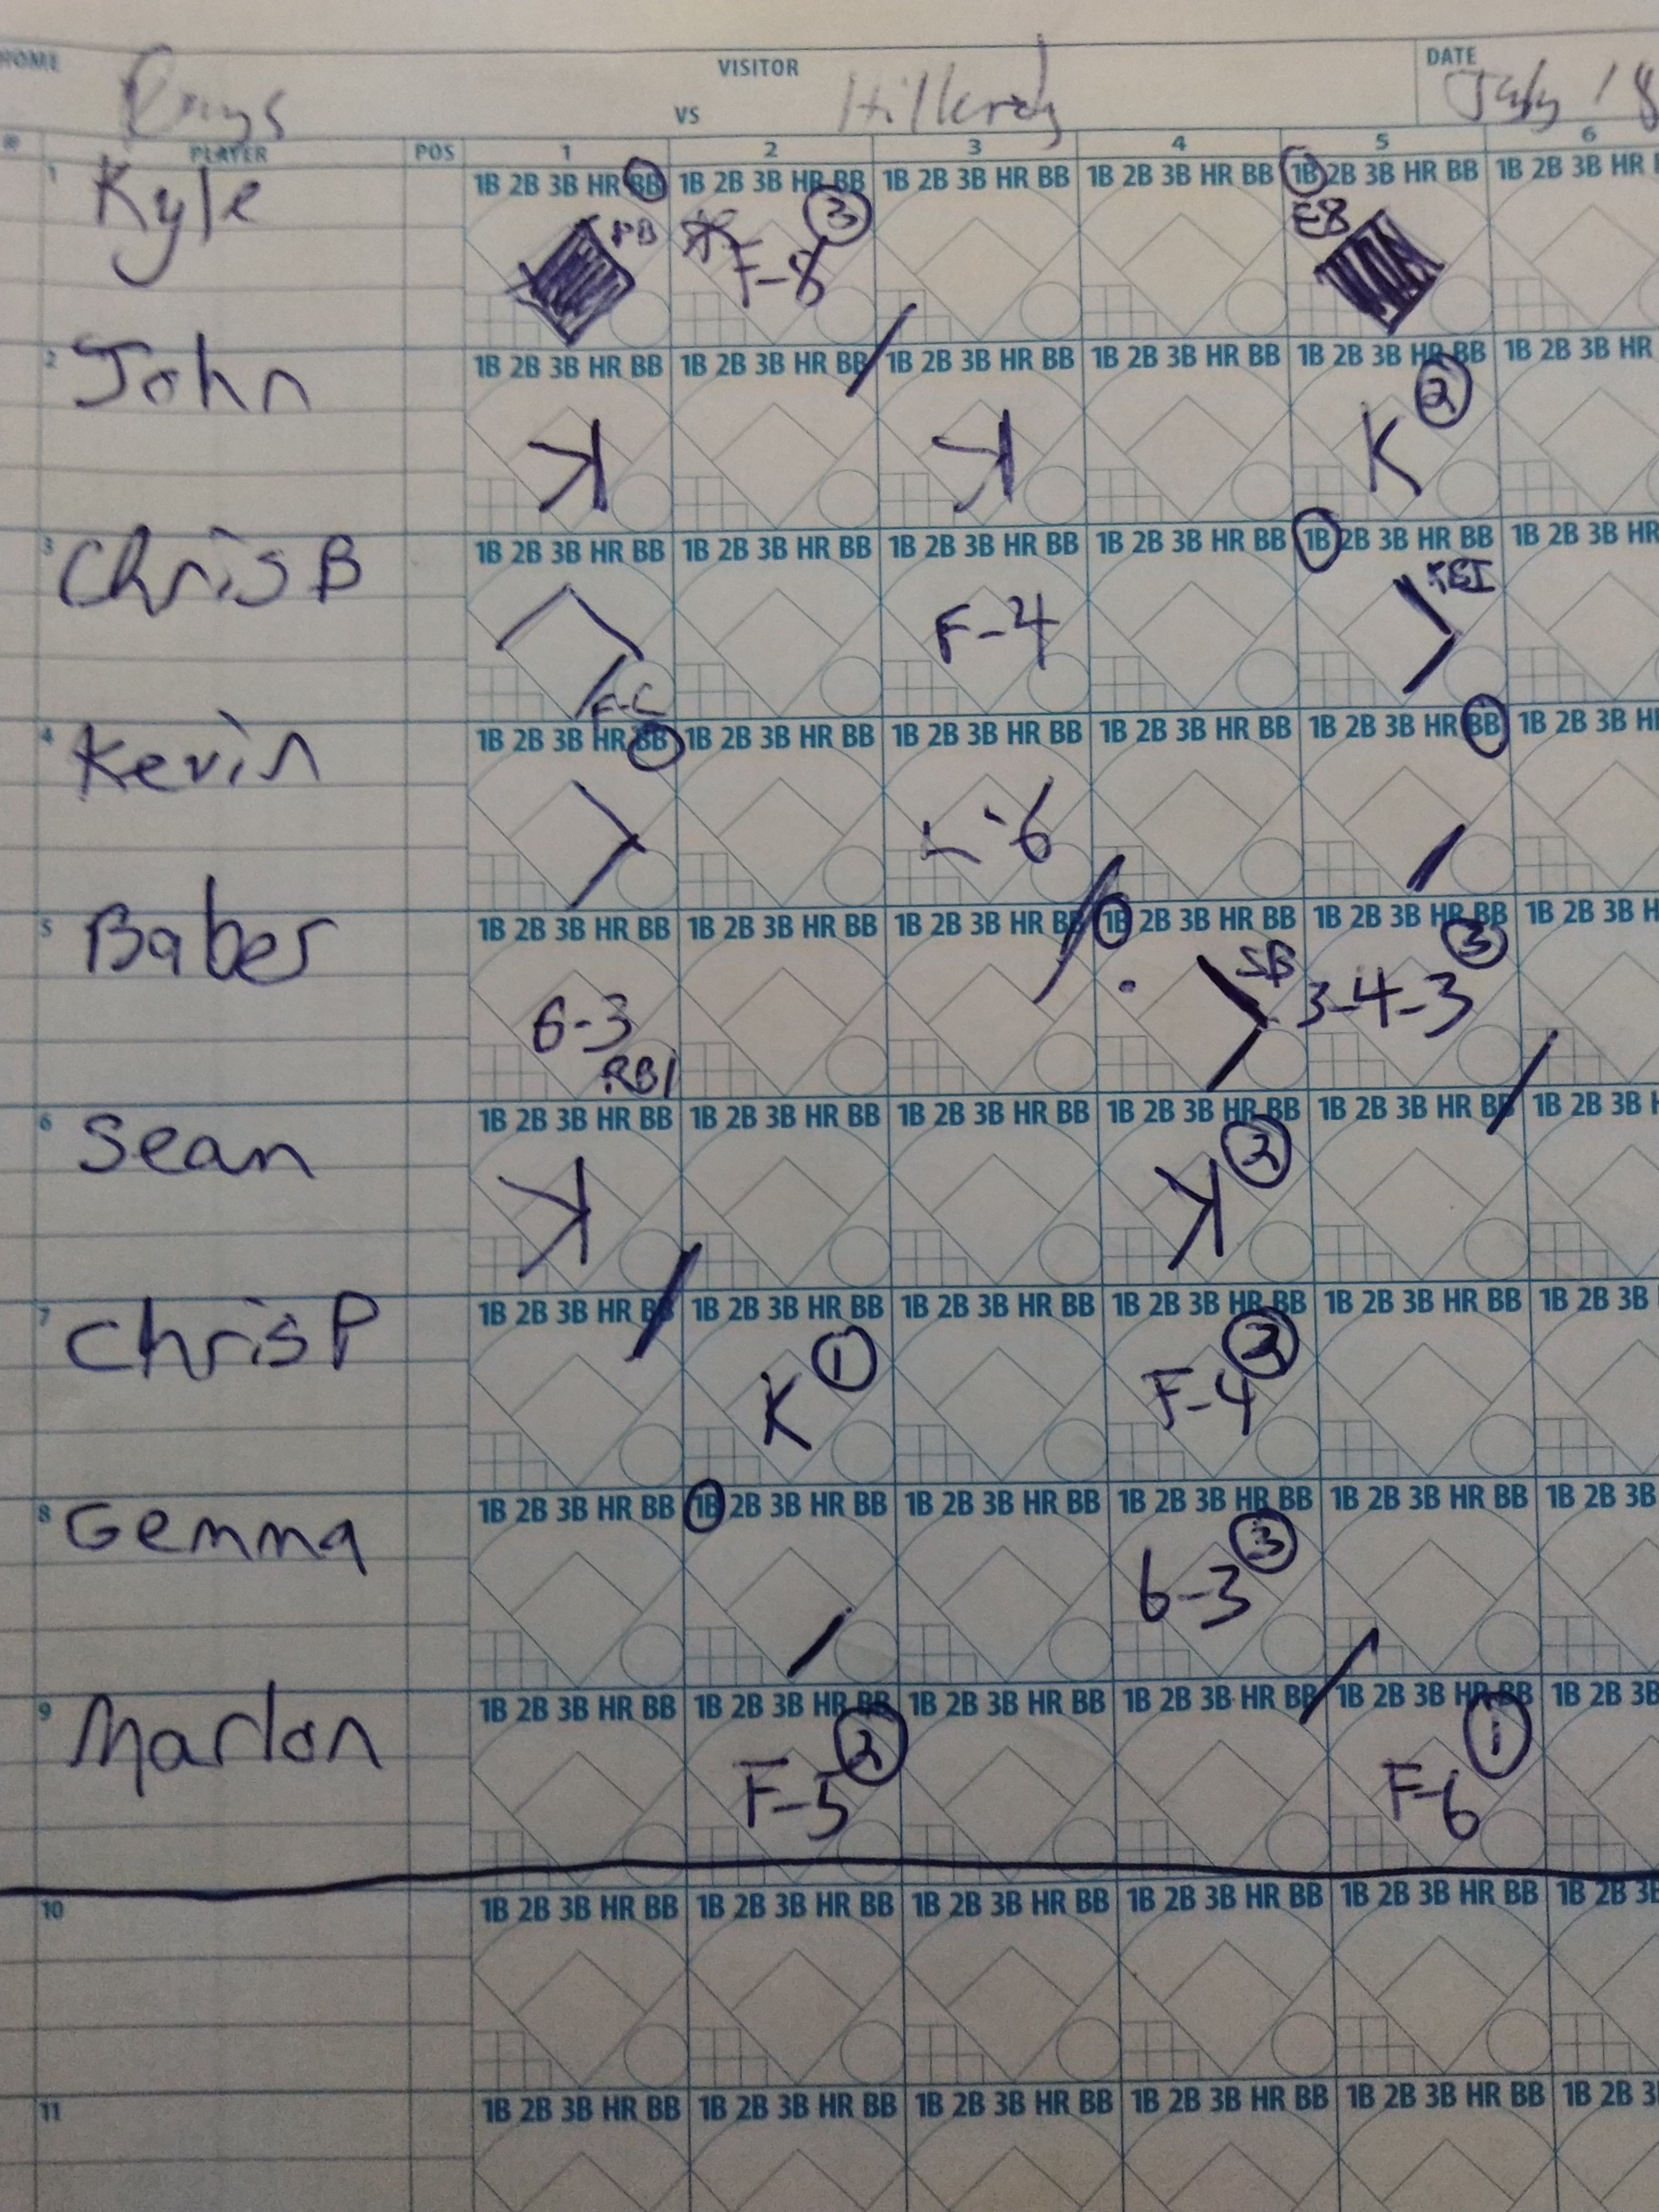 HOME VISITOR DATE
Rays VS Hillcrest July 18
# PLAYER POS 1 2 3 4 5 6
1 Kyle 1B 2B 3B HR BB 1B 2B 3B HR BB 1B 2B 3B HR BB 1B 2B 3B HR BB 1B 2B 3B HR BB 1B 2B 3B HR
PB F-8 3 E8
2 John 1B 2B 3B HR BB 1B 2B 3B HR BB 1B 2B 3B HR BB 1B 2B 3B HR BB 1B 2B 3B HR BB 1B 2B 3B HR
K K K 2
3 Chris B 1B 2B 3B HR BB 1B 2B 3B HR BB 1B 2B 3B HR BB 1B 2B 3B HR BB 1B 2B 3B HR BB 1B 2B 3B HR
F-C F-4 RBI
4 Kevin 1B 2B 3B HR BB 1B 2B 3B HR BB 1B 2B 3B HR BB 1B 2B 3B HR BB 1B 2B 3B HR BB 1B 2B 3B
6
5 Baber 1B 2B 3B HR BB 1B 2B 3B HR BB 1B 2B 3B HR BB 1B 2B 3B HR BB 1B 2B 3B HR BB 1B 2B 3B
6-3 RBI SB 3-4-3 3
6 Sean 1B 2B 3B HR BB 1B 2B 3B HR BB 1B 2B 3B HR BB 1B 2B 3B HR BB 1B 2B 3B HR BB 1B 2B 3B
K K 2
7 Chris P 1B 2B 3B HR BB 1B 2B 3B HR BB 1B 2B 3B HR BB 1B 2B 3B HR BB 1B 2B 3B HR BB 1B 2B 3B
K 1 F-4 2
8 Gemma 1B 2B 3B HR BB 1B 2B 3B HR BB 1B 2B 3B HR BB 1B 2B 3B HR BB 1B 2B 3B HR BB 1B 2B 3B
6-3 3
9 Marlon 1B 2B 3B HR BB 1B 2B 3B HR BB 1B 2B 3B HR BB 1B 2B 3B HR BB 1B 2B 3B HR BB 1B 2B 3B
F-5 2 F-6 1
10 1B 2B 3B HR BB 1B 2B 3B HR BB 1B 2B 3B HR BB 1B 2B 3B HR BB 1B 2B 3B HR BB 1B 2B 3B
11 1B 2B 3B HR BB 1B 2B 3B HR BB 1B 2B 3B HR BB 1B 2B 3B HR BB 1B 2B 3B HR BB 1B 2B